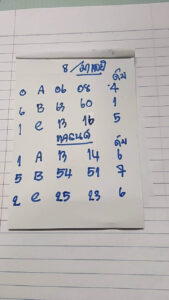 8/มกาคม
ดับ
0 A 06 08 4
6 B 63 60 1
1 C 13 16 5
ดับ
1 A 13 14 6
5 B 54 51 7
2 C 25 23 6